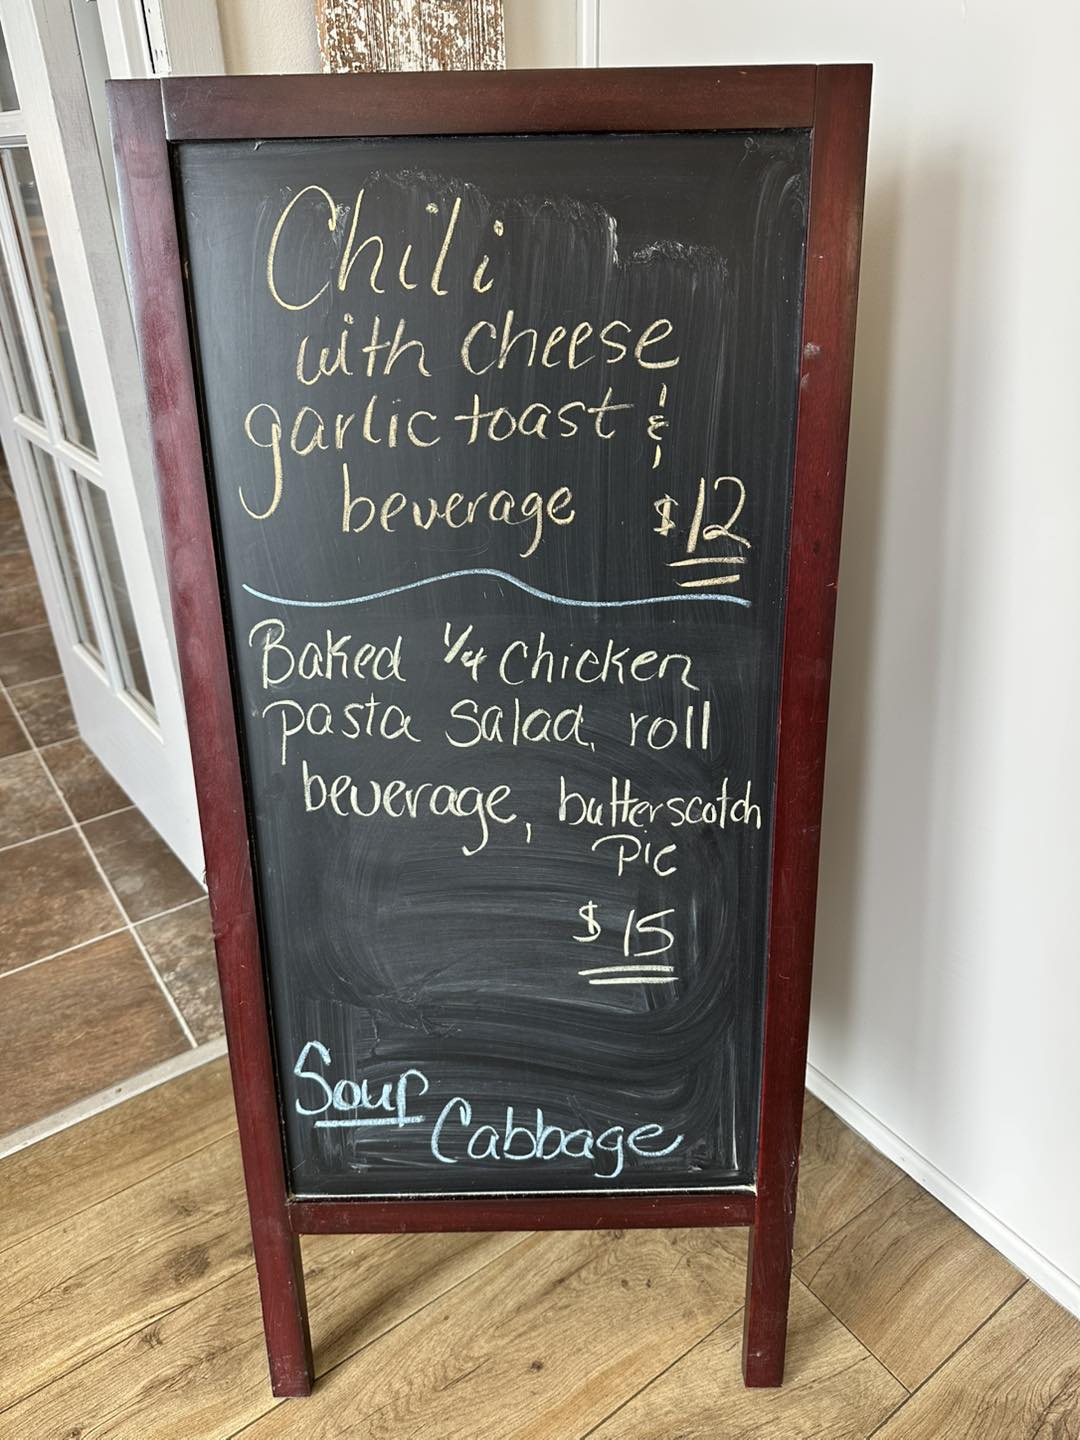 Chili
with cheese
garlic toast &
beverage $12
Baked 1/4 chicken
pasta salad, roll
beverage, butterscotch
pie
$15
Soup
Cabbage